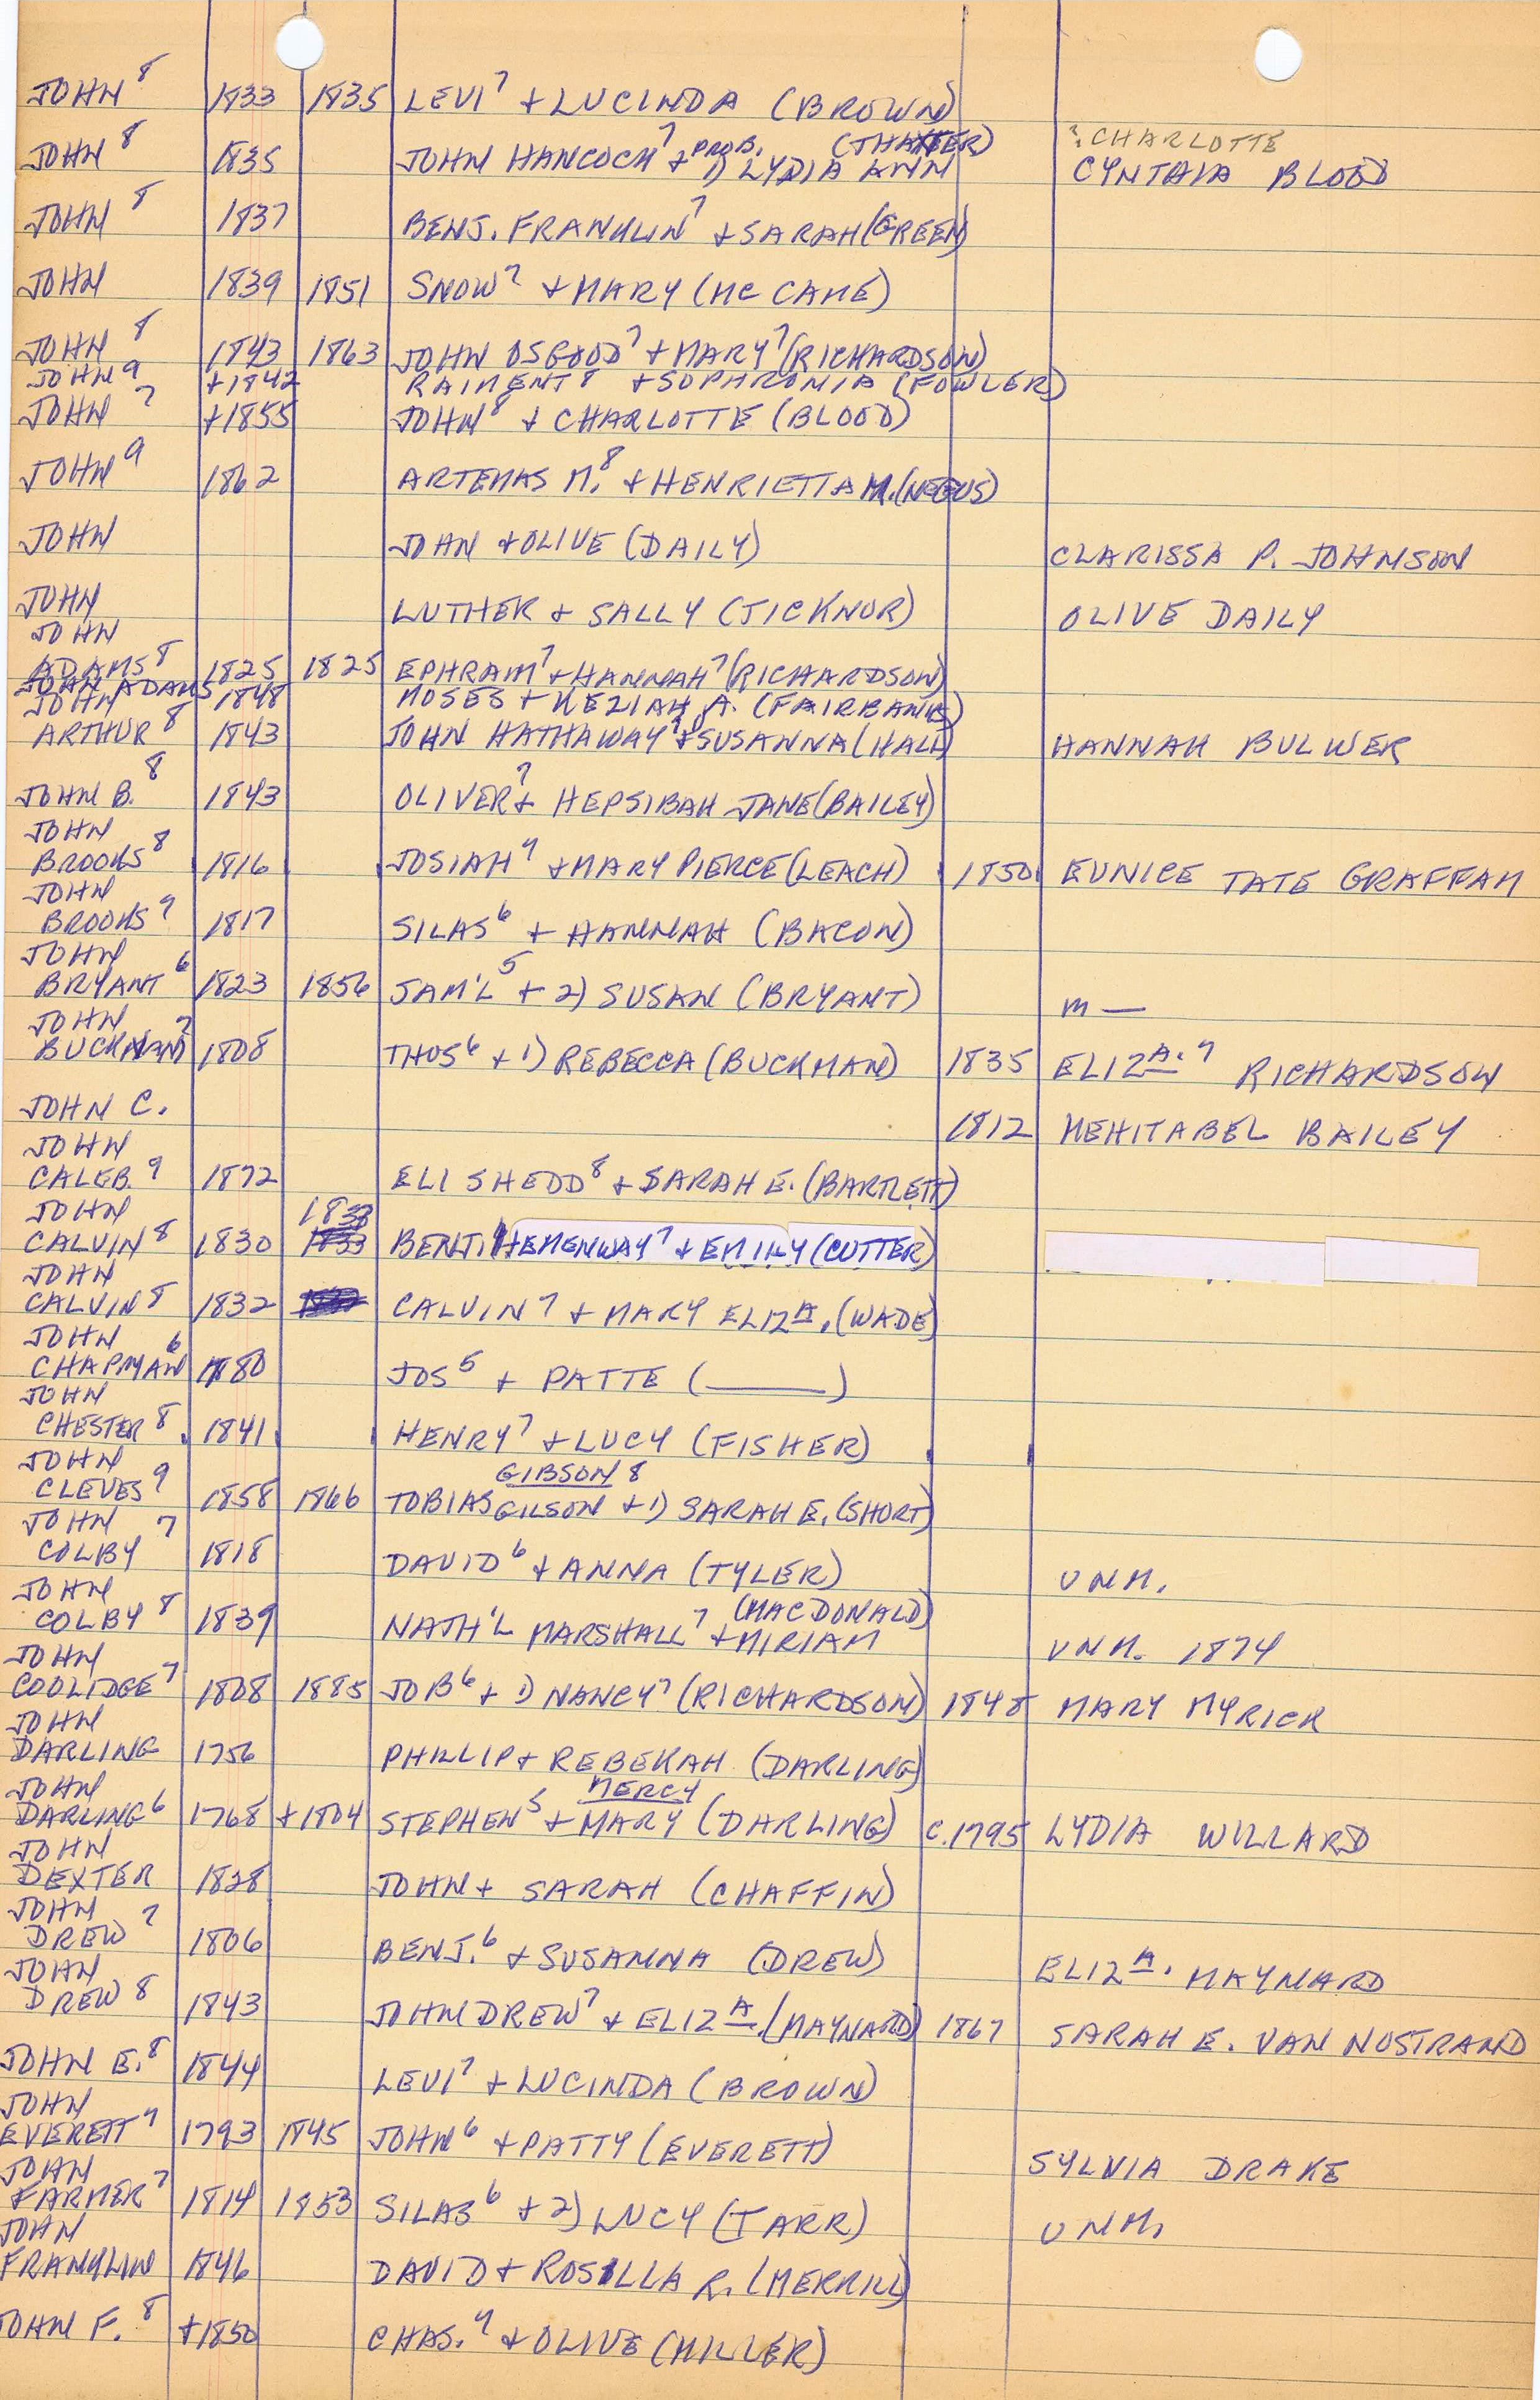 JOHN⁸ 1833 1835 LEVI⁷ + LUCINDA (BROWN)
? CHARLOTTE
JOHN⁸ 1835 JOHN HANCOCK⁷ + PROB. 1) LYDIA ANN (THAXTER) CYNTHIA BLOOD
JOHN⁸ 1837 BENJ. FRANKLIN⁷ + SARAH (GREEN)
JOHN 1839 1851 SNOW⁷ + MARY (MC CAME)
JOHN⁸ 1843 1863 JOHN OSGOOD⁷ + MARY⁷ (RICHARDSON)
JOHN⁹ +1842 RAIMENT⁸ + SOPHRONIA (FOWLER)
JOHN⁷ +1855 JOHN⁸ + CHARLOTTE (BLOOD)
JOHN⁹ 1862 ARTEMAS M.⁸ + HENRIETTA M. (NEGUS)
JOHN JOHN + OLIVE (DAILY) CLARISSA P. JOHNSON
JOHN LUTHER + SALLY (TICKNOR) OLIVE DAILY
JOHN
ADAMS⁸ 1825 1825 EPHRAIM⁷ + HANNAH⁷ (RICHARDSON)
JOHN ADAMS 1848 MOSES + KEZIAH A. (FAIRBANKS)
JOHN
ARTHUR⁸ 1843 JOHN HATHAWAY⁷ + SUSANNA (HALL) HANNAH BULWER
JOHN B.⁸ 1843 OLIVER⁷ + HEPSIBAH JANE (BAILEY)
JOHN
BROOKS⁸ 1816 JOSIAH⁷ + MARY PIERCE (LEACH) 1850 EUNICE TATE GRAFFAM
JOHN
BROOKS⁷ 1817 SILAS⁶ + HANNAH (BACON)
JOHN
BRYANT⁶ 1823 1856 SAM'L⁵ + 2) SUSAN (BRYANT) m —
JOHN
BUCKMAN⁷ 1808 THOS⁶ + 1) REBECCA (BUCKMAN) 1835 ELIZA.⁷ RICHARDSON
JOHN C. 1812 MEHITABEL BAILEY
JOHN
CALEB⁹ 1872 ELI SHEDD⁸ + SARAH E. (BARTLETT)
JOHN 1833
CALVIN⁸ 1830 1833 BENJ. HEMENWAY⁷ + EMILY (CUTTER)
JOHN
CALVIN⁸ 1832 CALVIN⁷ + MARY ELIZA. (WADE)
JOHN
CHAPMAN⁶ 1780 JOS⁵ + PATTE (______)
JOHN
CHESTER⁸ 1841 HENRY⁷ + LUCY (FISHER)
JOHN GIBSON⁸
CLEVES⁹ 1858 1866 TOBIAS GILSON + 1) SARAH E. (SHORT)
JOHN
COLBY⁷ 1818 DAVID⁶ + ANNA (TYLER) UNM.
JOHN
COLBY⁸ 1839 NATH'L MARSHALL⁷ + MIRIAM (MACDONALD) UNM. 1874
JOHN
COOLIDGE⁷ 1808 1885 JOB⁶ + 1) NANCY⁷ (RICHARDSON) 1848 MARY MYRICK
JOHN
DARLING 1756 PHILLIP + REBEKAH (DARLING)
JOHN MERCY
DARLING⁶ 1768 +1804 STEPHEN⁵ + MARY (DARLING) C.1795 LYDIA WILLARD
JOHN
DEXTER 1828 JOHN + SARAH (CHAFFIN)
JOHN
DREW⁷ 1806 BENJ.⁶ + SUSANNA (DREW) ELIZA. MAYNARD
JOHN
DREW⁸ 1843 JOHN DREW⁷ + ELIZA. (MAYNARD) 1867 SARAH E. VAN NOSTRAND
JOHN E.⁸ 1844 LEVI⁷ + LUCINDA (BROWN)
JOHN
EVERETT⁷ 1793 1845 JOHN⁶ + PATTY (EVERETT) SYLVIA DRAKE
JOHN
FARMER⁷ 1814 1853 SILAS⁶ + 2) LUCY (TARR) UNM.
JOHN
FRANKLIN 1846 DAVID + ROSILLA R. (MERRILL)
JOHN F.⁸ +1850 CHAS.⁷ + OLIVE (MILLER)